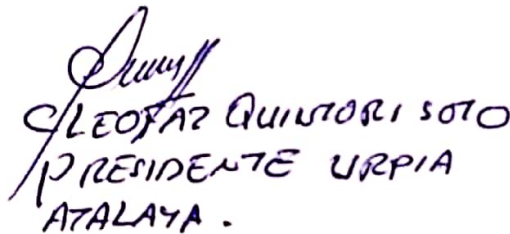 CLEOFAZ QUINTORI SOTO
PRESIDENTE URPIA
ATALAYA.